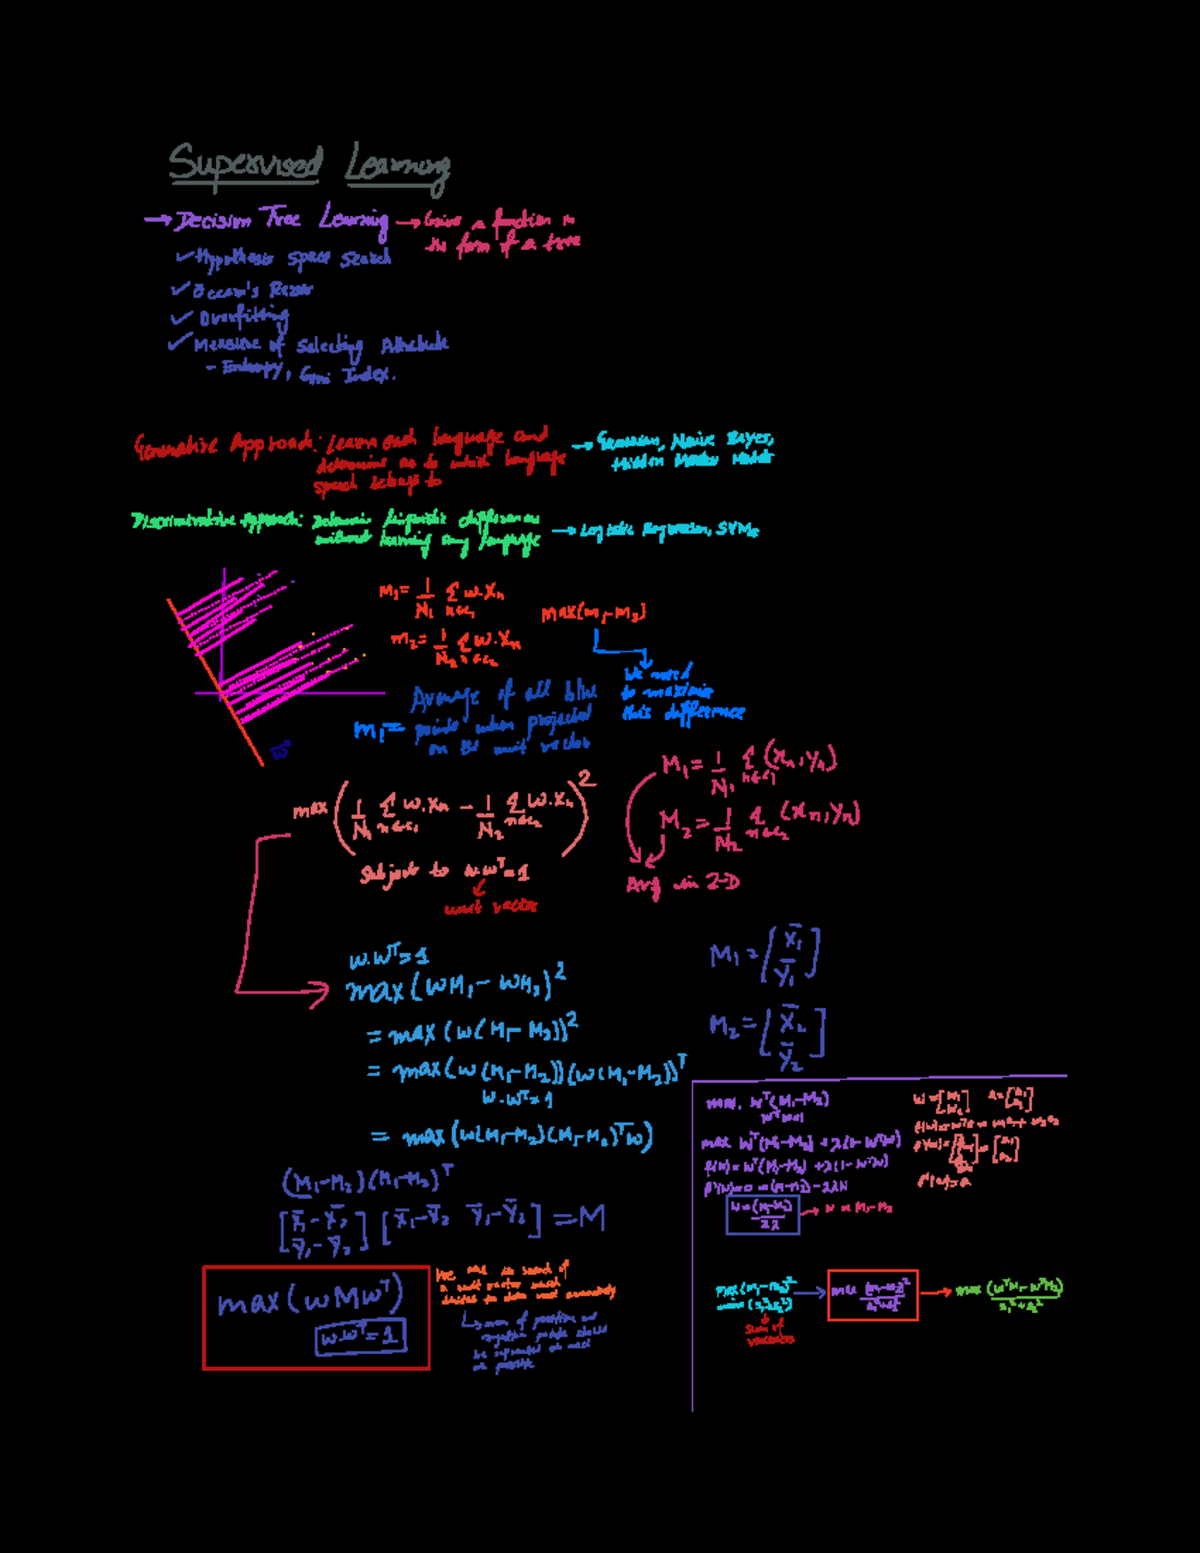 Supervised Learning
→ Decision Tree Learning → Gives a function in
the form of a tree
✓ Hypothesis Space Search
✓ Occam's Razor
✓ Overfitting
✓ Measure of Selecting Attribute
- Entropy, Gini Index.
Generative Approach: Learn each language and → Gaussian, Naive Bayes,
determine as to which language Hidden Markov Model
speech belongs to
Discriminative Approach: Determine linguistic differences → Logistic Regression, SVMs
without learning any language
m₁ = 1/N₁ Σ n∈c₁ w.xₙ
max(m₁-m₂)
m₂ = 1/N₂ Σ n∈c₂ w.xₙ
We need
to maximize
this difference
m₁ = Average of all blue
points when projected
on the unit vector
w
M₁ = 1/N₁ Σ n∈c₁ (xₙ, yₙ)
M₂ = 1/N₂ Σ n∈c₂ (xₙ, yₙ)
Avg in 2-D
max (1/N₁ Σ n∈c₁ w.xₙ - 1/N₂ Σ n∈c₂ w.xₙ)²
Subject to w.wᵀ=1
unit vector
w.wᵀ=1
max(wM₁-wM₂)²
= max(w(M₁-M₂))²
= max(w(M₁-M₂))(w(M₁-M₂))ᵀ
w.wᵀ=1
= max(w(M₁-M₂)(M₁-M₂)ᵀw)
M₁ = [x̄₁ ȳ₁]
M₂ = [x̄₂ ȳ₂]
(M₁-M₂)(M₁-M₂)ᵀ
[x̄₁-x̄₂ ȳ₁-ȳ₂] [x̄₁-x̄₂ ȳ₁-ȳ₂] = M
max(wMwᵀ)
w.wᵀ=1
We are in search of
a unit vector which
divides the data most accurately
of positive and
negative points should
be separated as much
as possible
max. wᵀ(M₁-M₂)
wᵀw=1
max wᵀ(M₁-M₂) + λ(1-wᵀw)
f(w) = wᵀ(M₁-M₂) + λ(1-wᵀw)
f'(w)=0 = (M₁-M₂) - 2λw
w = (M₁-M₂)/2λ → w ∝ M₁-M₂
f'(w)=a
max(m₁-m₂)² → max (m₁-m₂)²/s₁²+s₂² → max (wᵀM₁-wᵀM₂)/s₁²+s₂²
min(s₁²+s₂²)
Sum of
variances